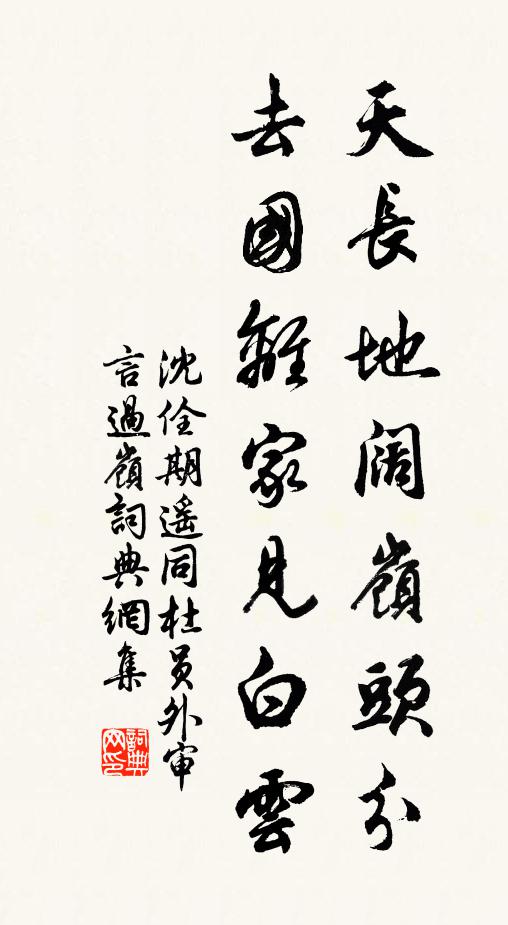 天長地闊嶺頭分
去國離家見白雲
沈佺期遥同杜員外审
言過嶺詞典網集
詞典
网印